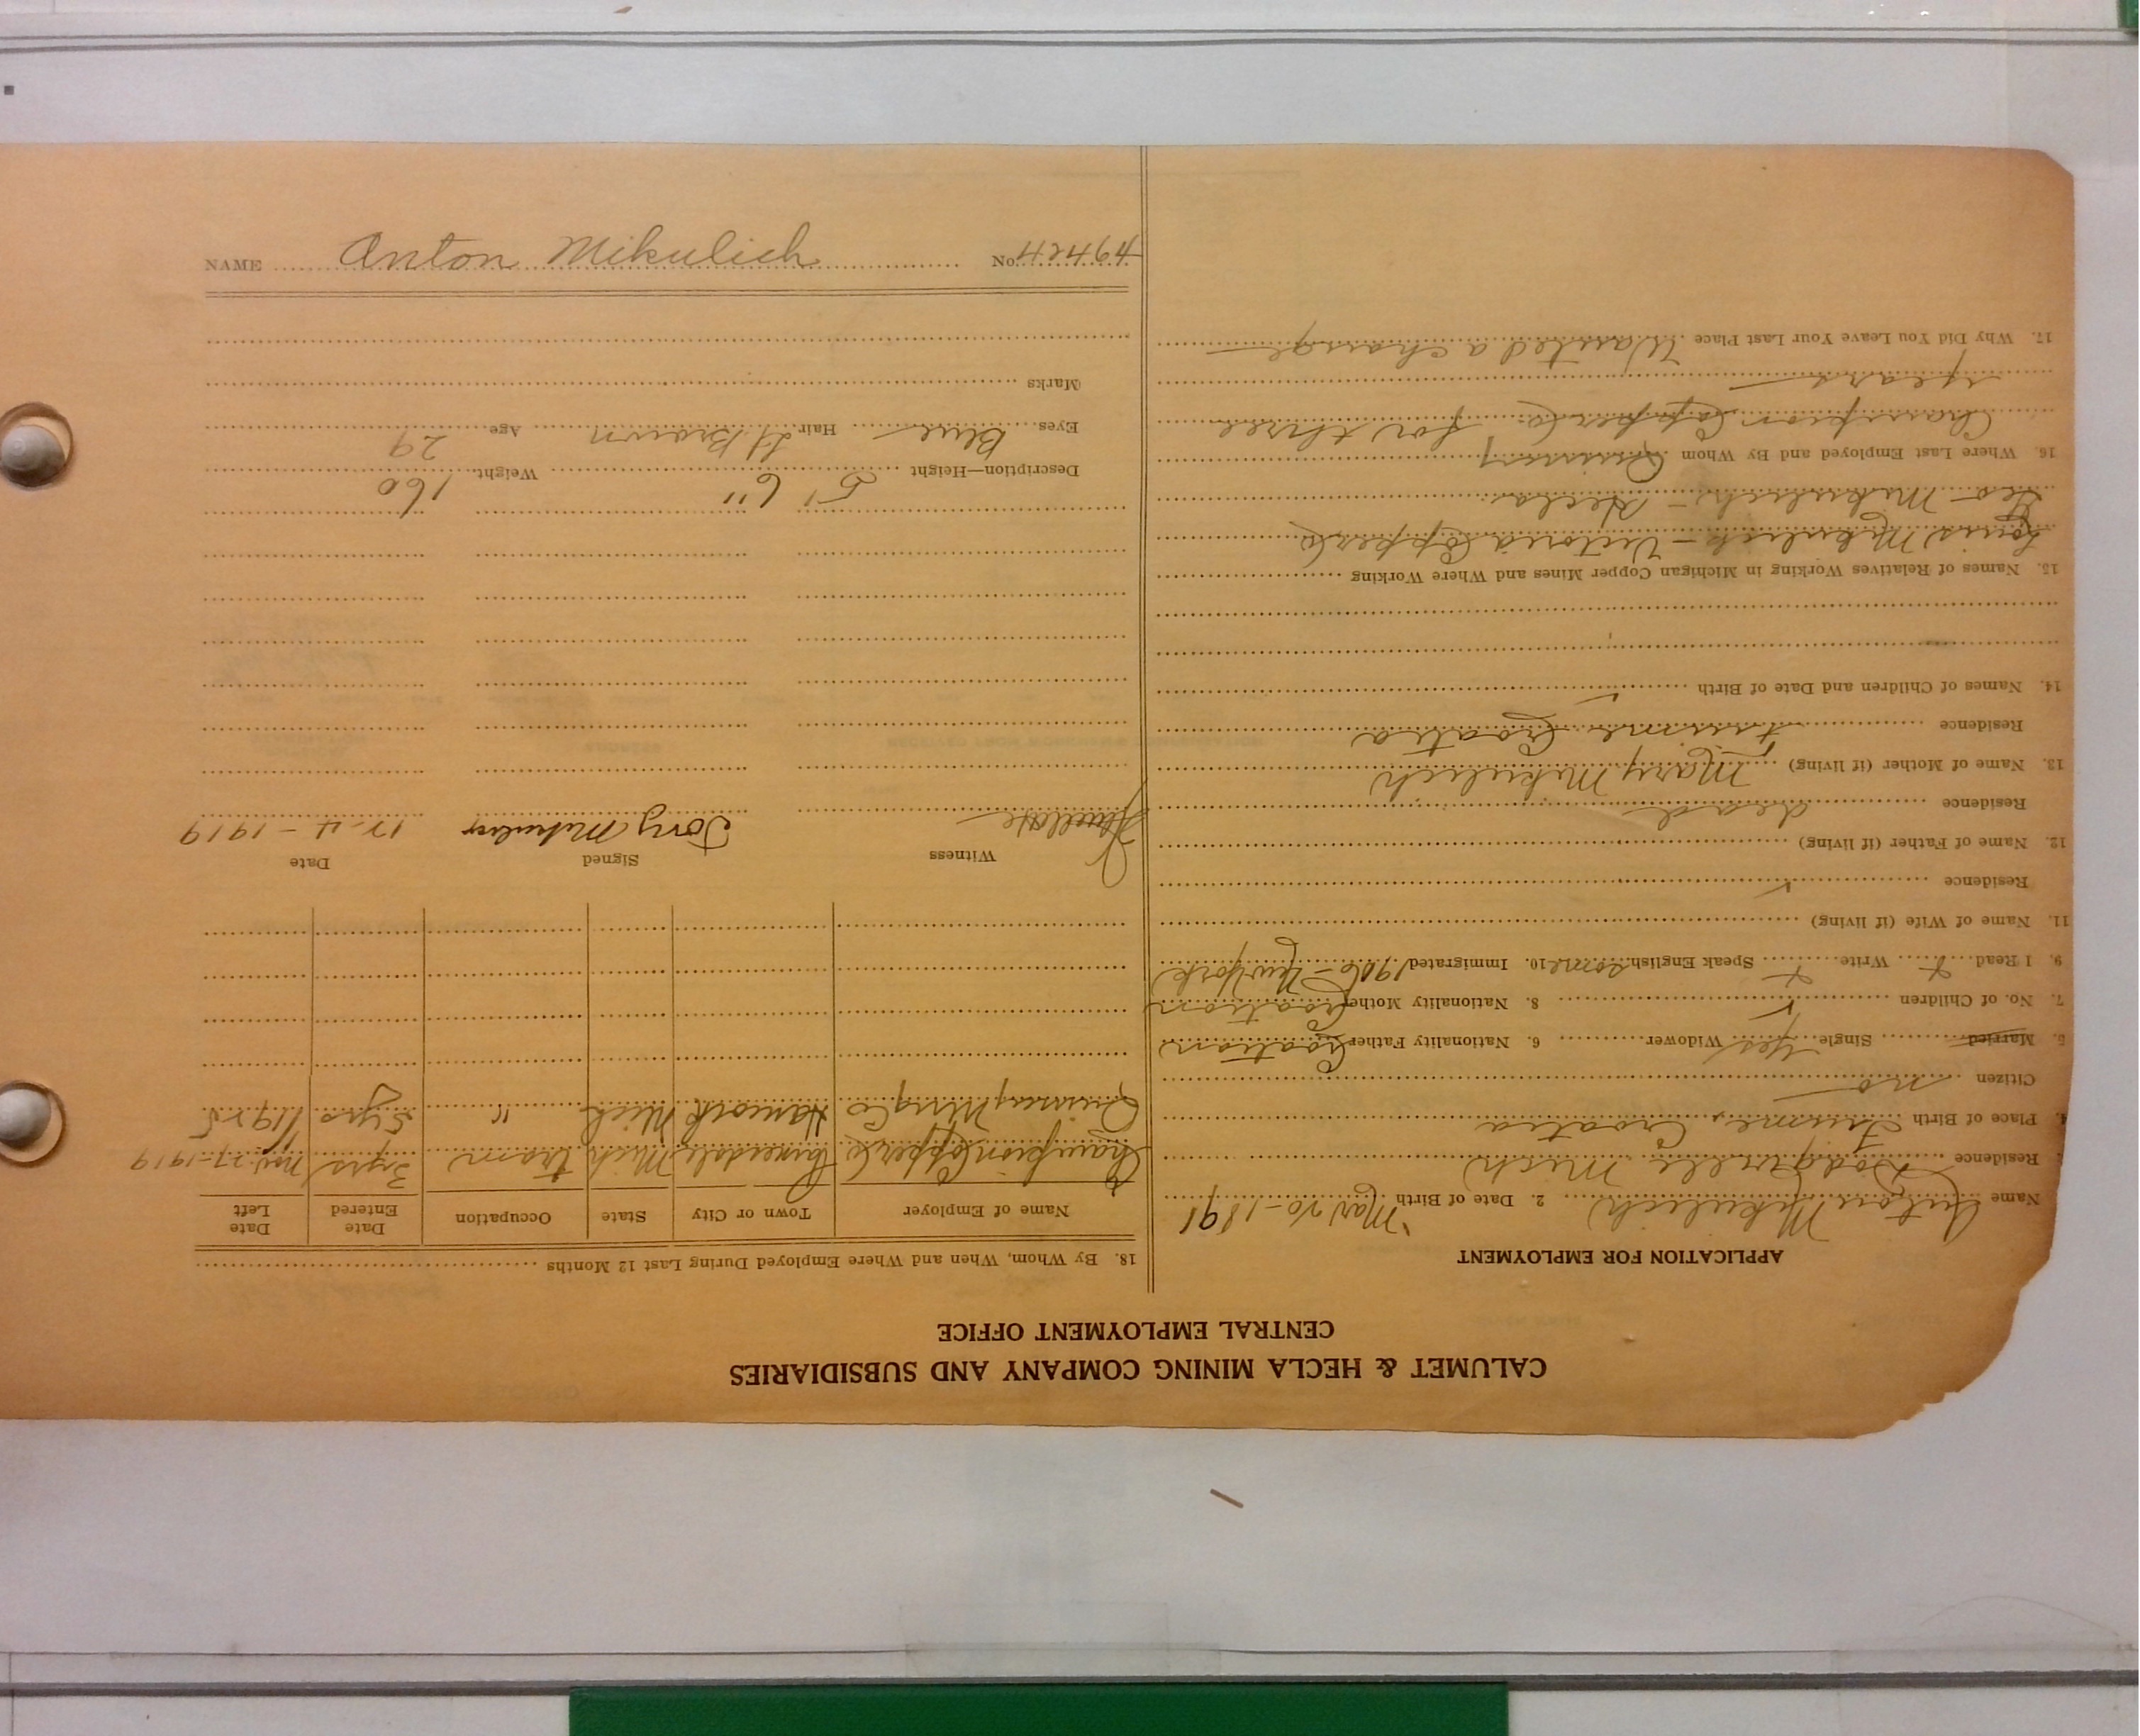 CALUMET & HECLA MINING COMPANY AND SUBSIDIARIES
CENTRAL EMPLOYMENT OFFICE
APPLICATION FOR EMPLOYMENT
Name Anton Mikulich 2. Date of Birth Mar 20-1891
Residence Dodgeville Mich
4. Place of Birth Fiume, Croatia
Citizen no
5. Married Single yes Widower 6. Nationality Father Croatian
7. No. of Children 8. Nationality Mother Croatian
9. I Read Write Speak English some 10. Immigrated 1906 - New York
11. Name of Wife (if living)
Residence
12. Name of Father (if living)
Residence dead
13. Name of Mother (if living) Mary Mikulich
Residence Fiume Croatia
14. Names of Children and Date of Birth
15. Names of Relatives Working in Michigan Copper Mines and Where Working
Louis Mikulich - Victoria Copper Co
Geo - Mikulich - Hecla
16. Where Last Employed and By Whom Quincy
Champion Copper Co. for three
years
17. Why Did You Leave Your Last Place Wanted a change
18. By Whom, When and Where Employed During Last 12 Months
Name of Employer Town or City State Occupation Date Entered Date Left
Champion Copper Co Painesdale Mich tram 3 yrs Nov. 27-1919
Quincy Mng Co Hancock Mich " 5 yrs
Witness Signed Date
Tony 12-4-1919
Description—Height 5' 6" Weight 160
Eyes Blue Hair Lt Brown Age 29
Marks
NAME Anton Mikulich No. 42464